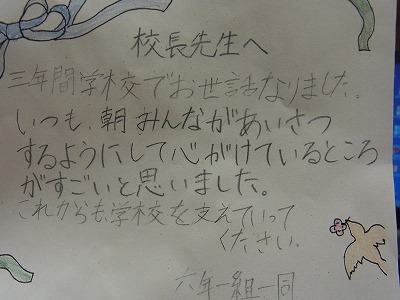 校長先生へ
三年間学校でお世話なりました。
いつも、朝みんながあいさつ
するようにして心がけているところ
がすごいと思いました。
これからも学校を支えていって
ください。
六年一組一同